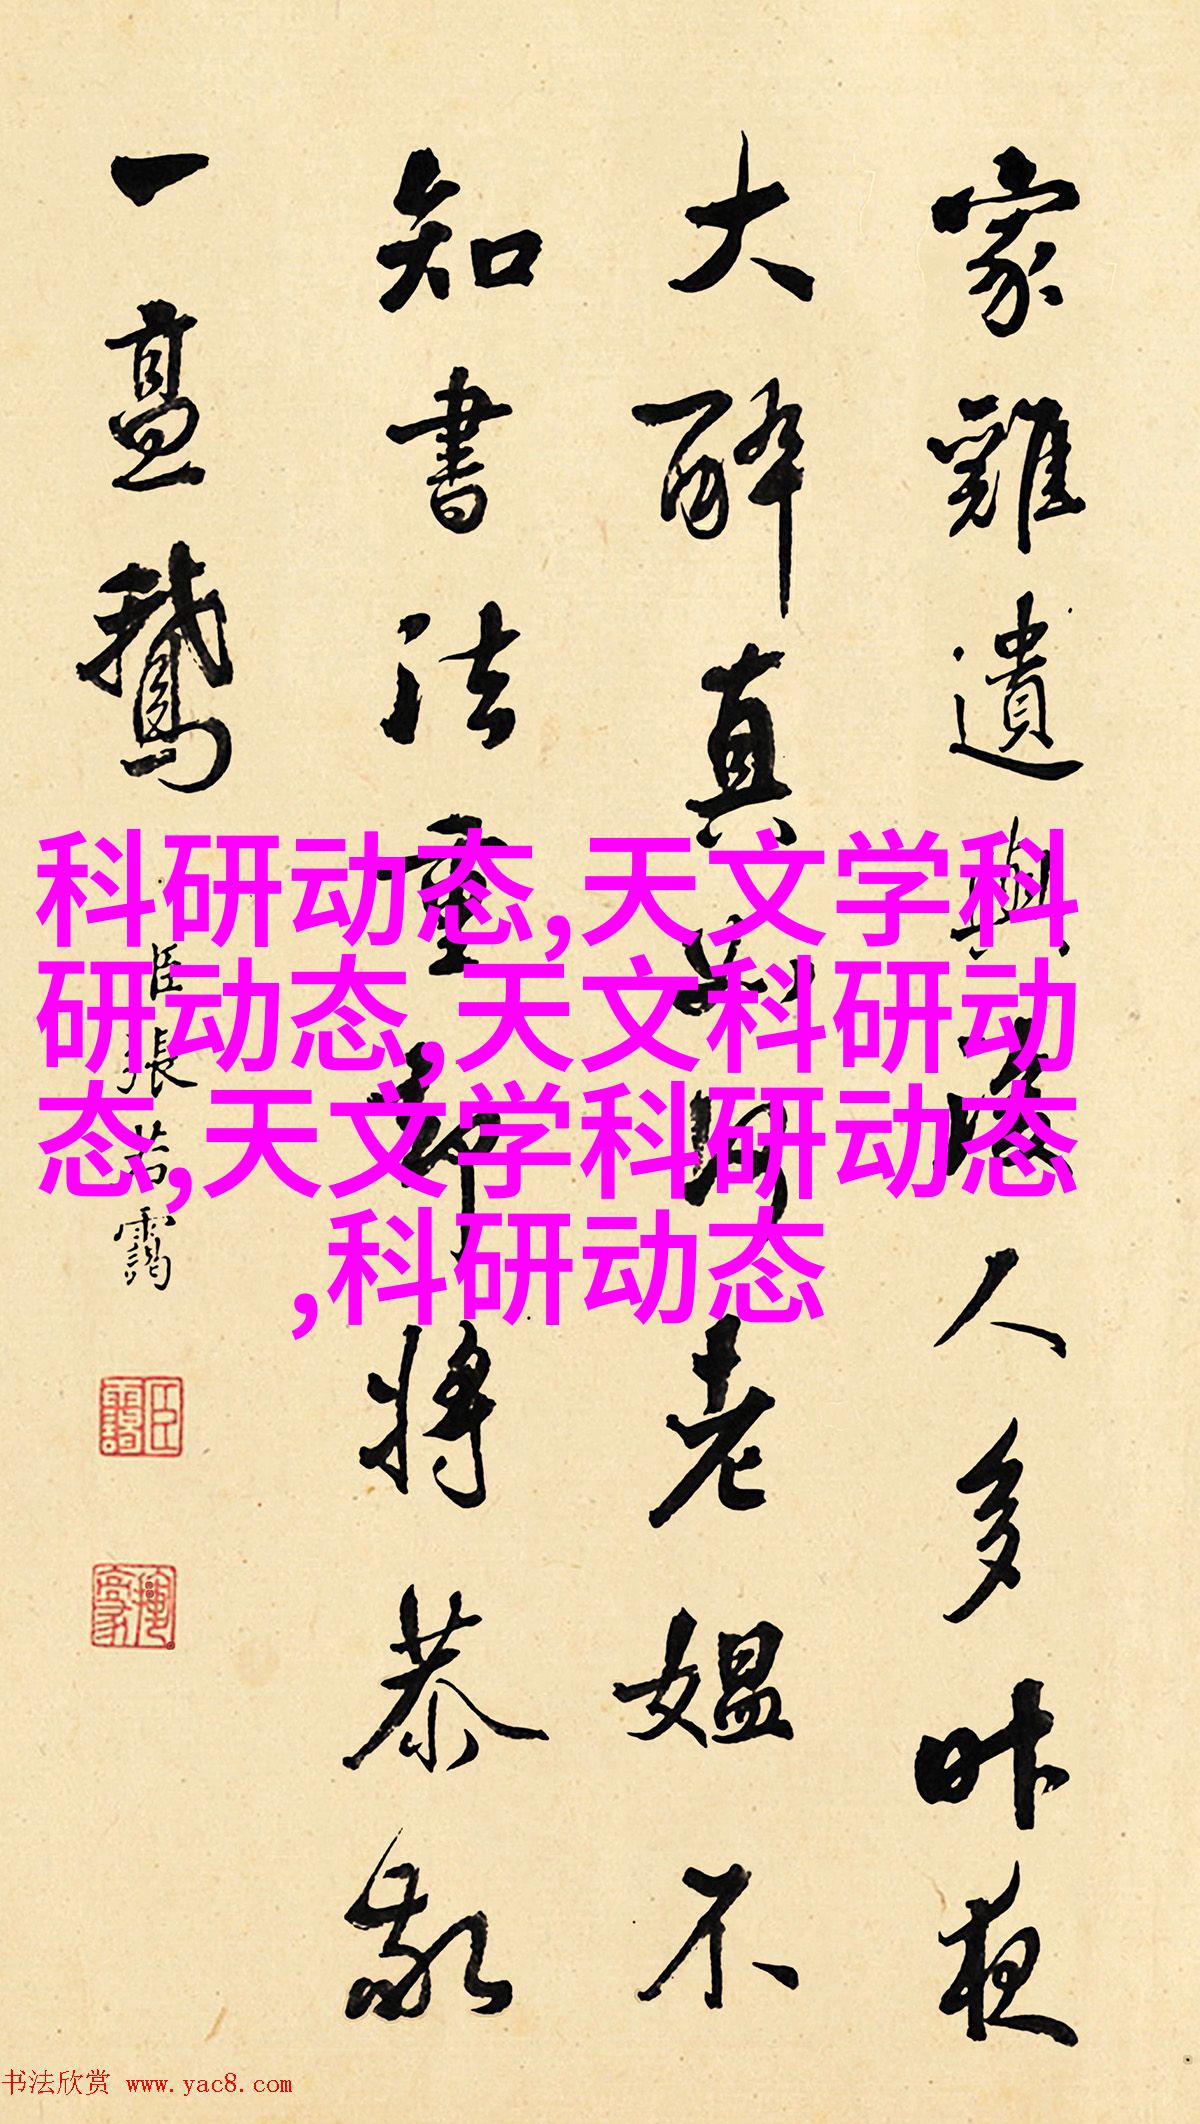 家雞遺與人多昨夜
大醉真如老媼不
知書法重將恭敬
一鵝
臣張若靄
科研动态,天文学科
研动态,天文科研动
态,天文学科研动态
,科研动态
书法欣赏 www.yac8.com